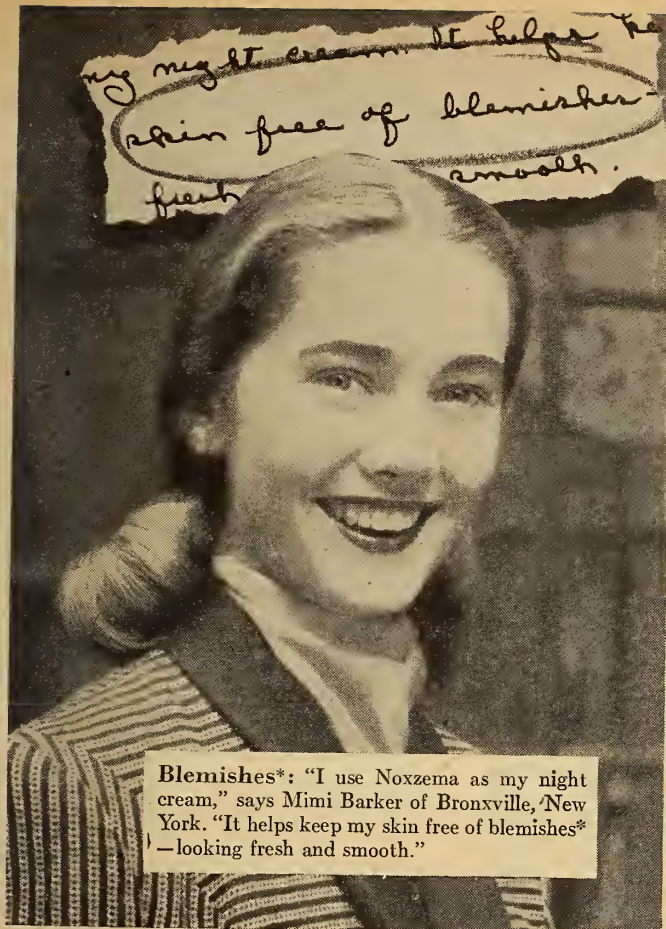 my night cream. It helps ke
skin free of blemishes-
fresh smooth.
Blemishes*: “I use Noxzema as my night
cream,” says Mimi Barker of Bronxville, New
York. “It helps keep my skin free of blemishes*
—looking fresh and smooth.”